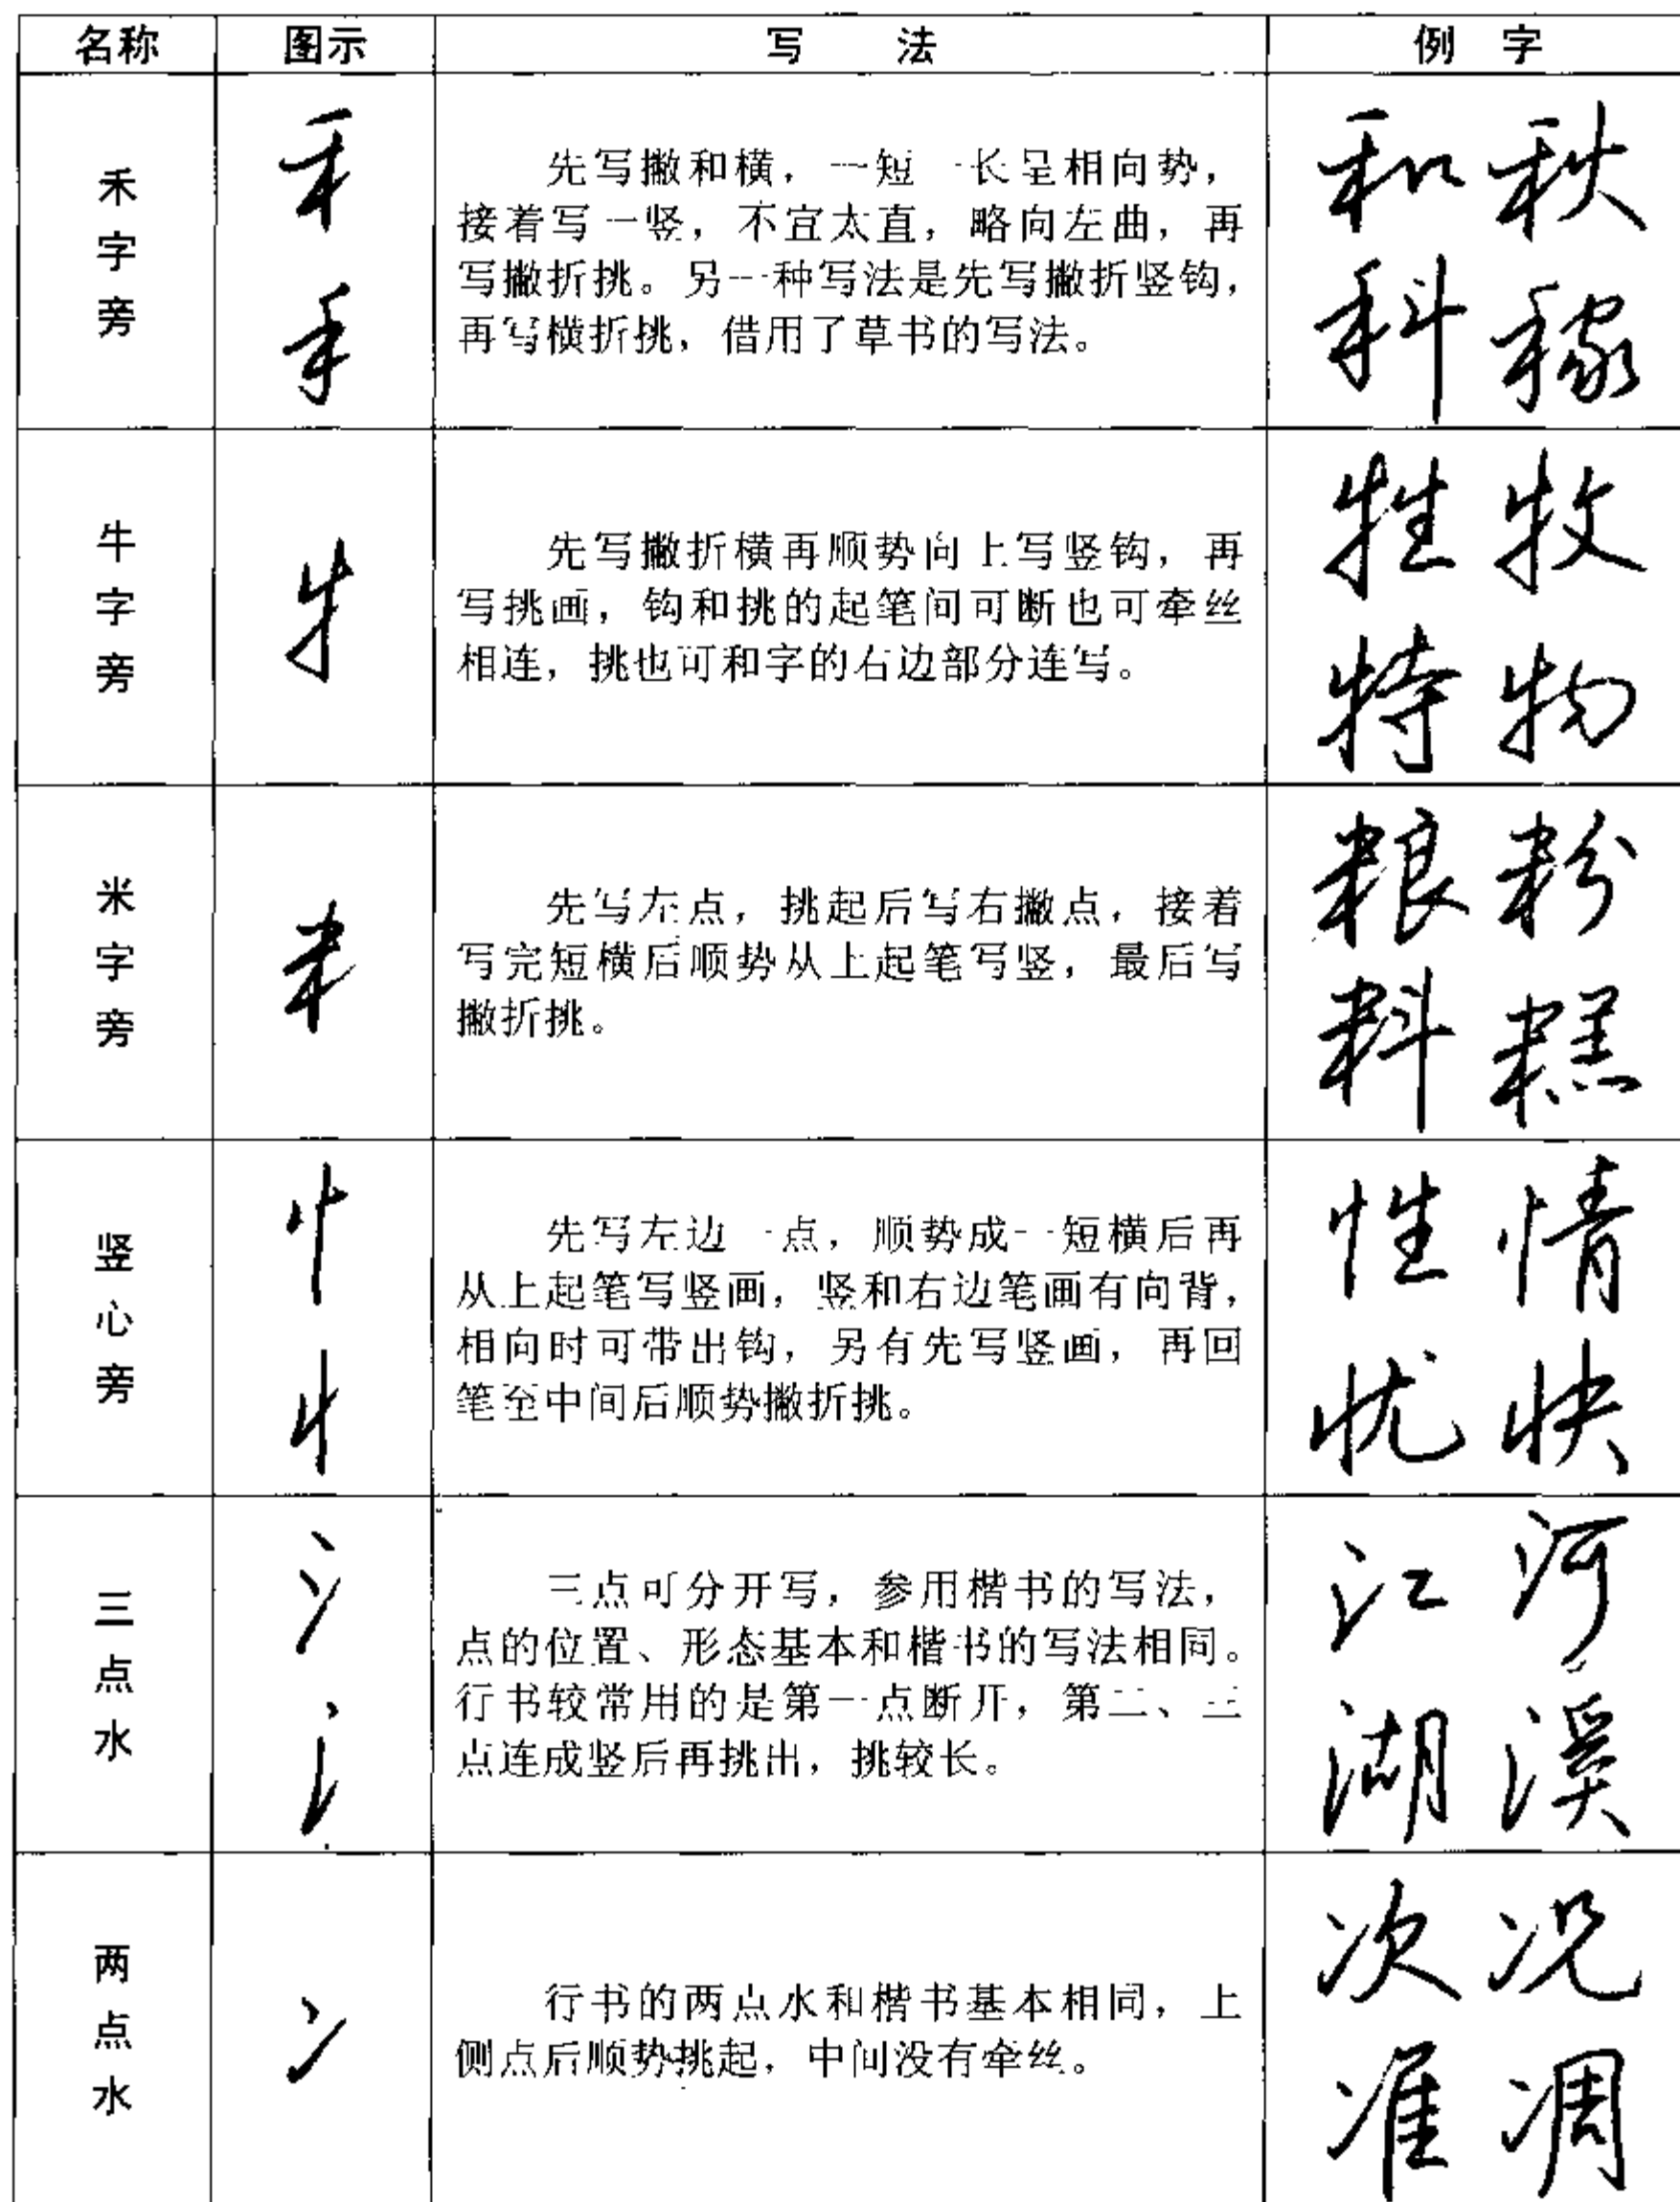 名称 图示 写法 例字
禾字旁
先写撇和横，一短一长呈相向势，
接着写一竖，不宜太直，略向左曲，再
写撇折挑。另一种写法是先写撇折竖钩，
再写横折挑，借用了草书的写法。
和 秋
科 稼
牛字旁
先写撇折横再顺势向上写竖钩，再
写挑画，钩和挑的起笔间可断也可牵丝
相连，挑也可和字的右边部分连写。
牲 牧
特 物
米字旁
先写左点，挑起后写右撇点，接着
写完短横后顺势从上起笔写竖，最后写
撇折挑。
粮 粉
料 糕
竖心旁
先写左边一点，顺势成一短横后再
从上起笔写竖画，竖和右边笔画有向背，
相向时可带出钩，另有先写竖画，再回
笔至中间后顺势撇折挑。
性 情
忧 快
三点水
三点可分开写，参用楷书的写法，
点的位置、形态基本和楷书的写法相同。
行书较常用的是第一点断开，第二、三
点连成竖后再挑出，挑较长。
江 河
湖 溪
两点水
行书的两点水和楷书基本相同，上
侧点后顺势挑起，中间没有牵丝。
次 况
准 凋